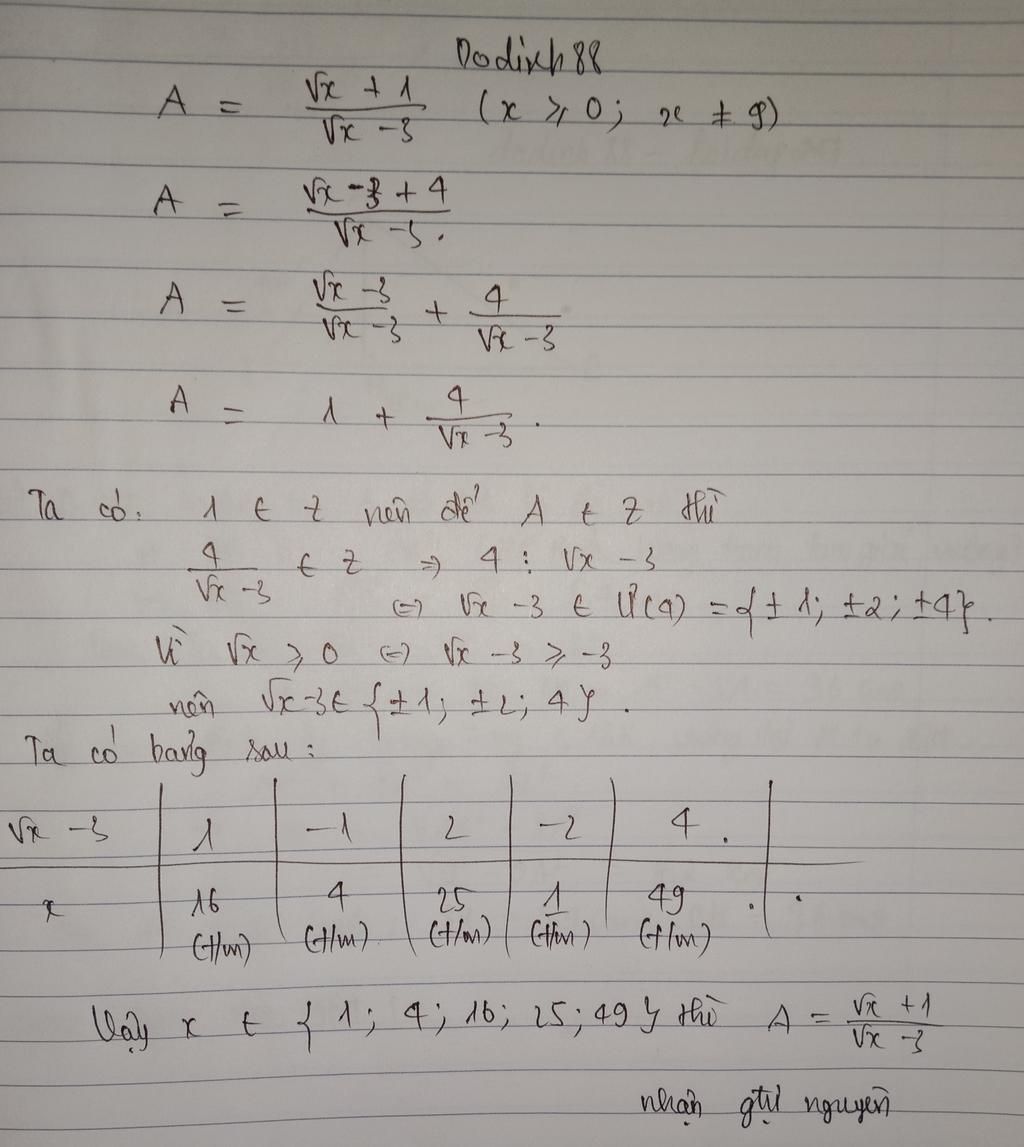 Dodinh88
A = (√x + 1)/(√x - 3) (x ⩾ 0; x ≠ 9)
A = (√x - 3 + 4)/(√x - 3).
A = (√x - 3)/(√x - 3) + 4/(√x - 3)
A = 1 + 4/(√x - 3).
Ta có: 1 ∈ Z nên để A ∈ Z thì
4/(√x - 3) ∈ Z ⇒ 4 ⋮ √x - 3
⇔ √x - 3 ∈ Ư(4) = {±1; ±2; ±4}.
Vì √x ⩾ 0 ⇔ √x - 3 ⩾ -3
nên √x - 3 ∈ {±1; ±2; 4}.
Ta có bảng sau:
√x - 3 | 1 | -1 | 2 | -2 | 4.
x | 16 | 4 | 25 | 1 | 49
(t/m) | (t/m) | (t/m) | (t/m) | (t/m)
Vậy x ∈ {1; 4; 16; 25; 49} thì A = (√x + 1)/(√x - 3)
nhận gtrị nguyên